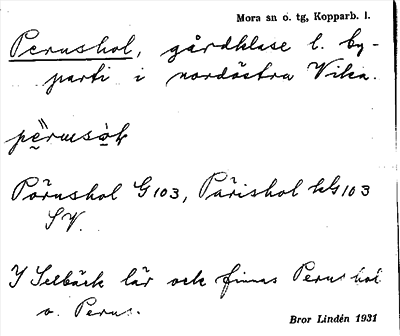 Mora sn o. tg, Kopparb. l.
Perushol, gårdklase l. by-
parti i nordöstra Vika.
Pörushol G103, Pärishol hG103
SV.
I Selbäck lär ock finnas Perushol
o. Perus.
Bror Lindén 1931